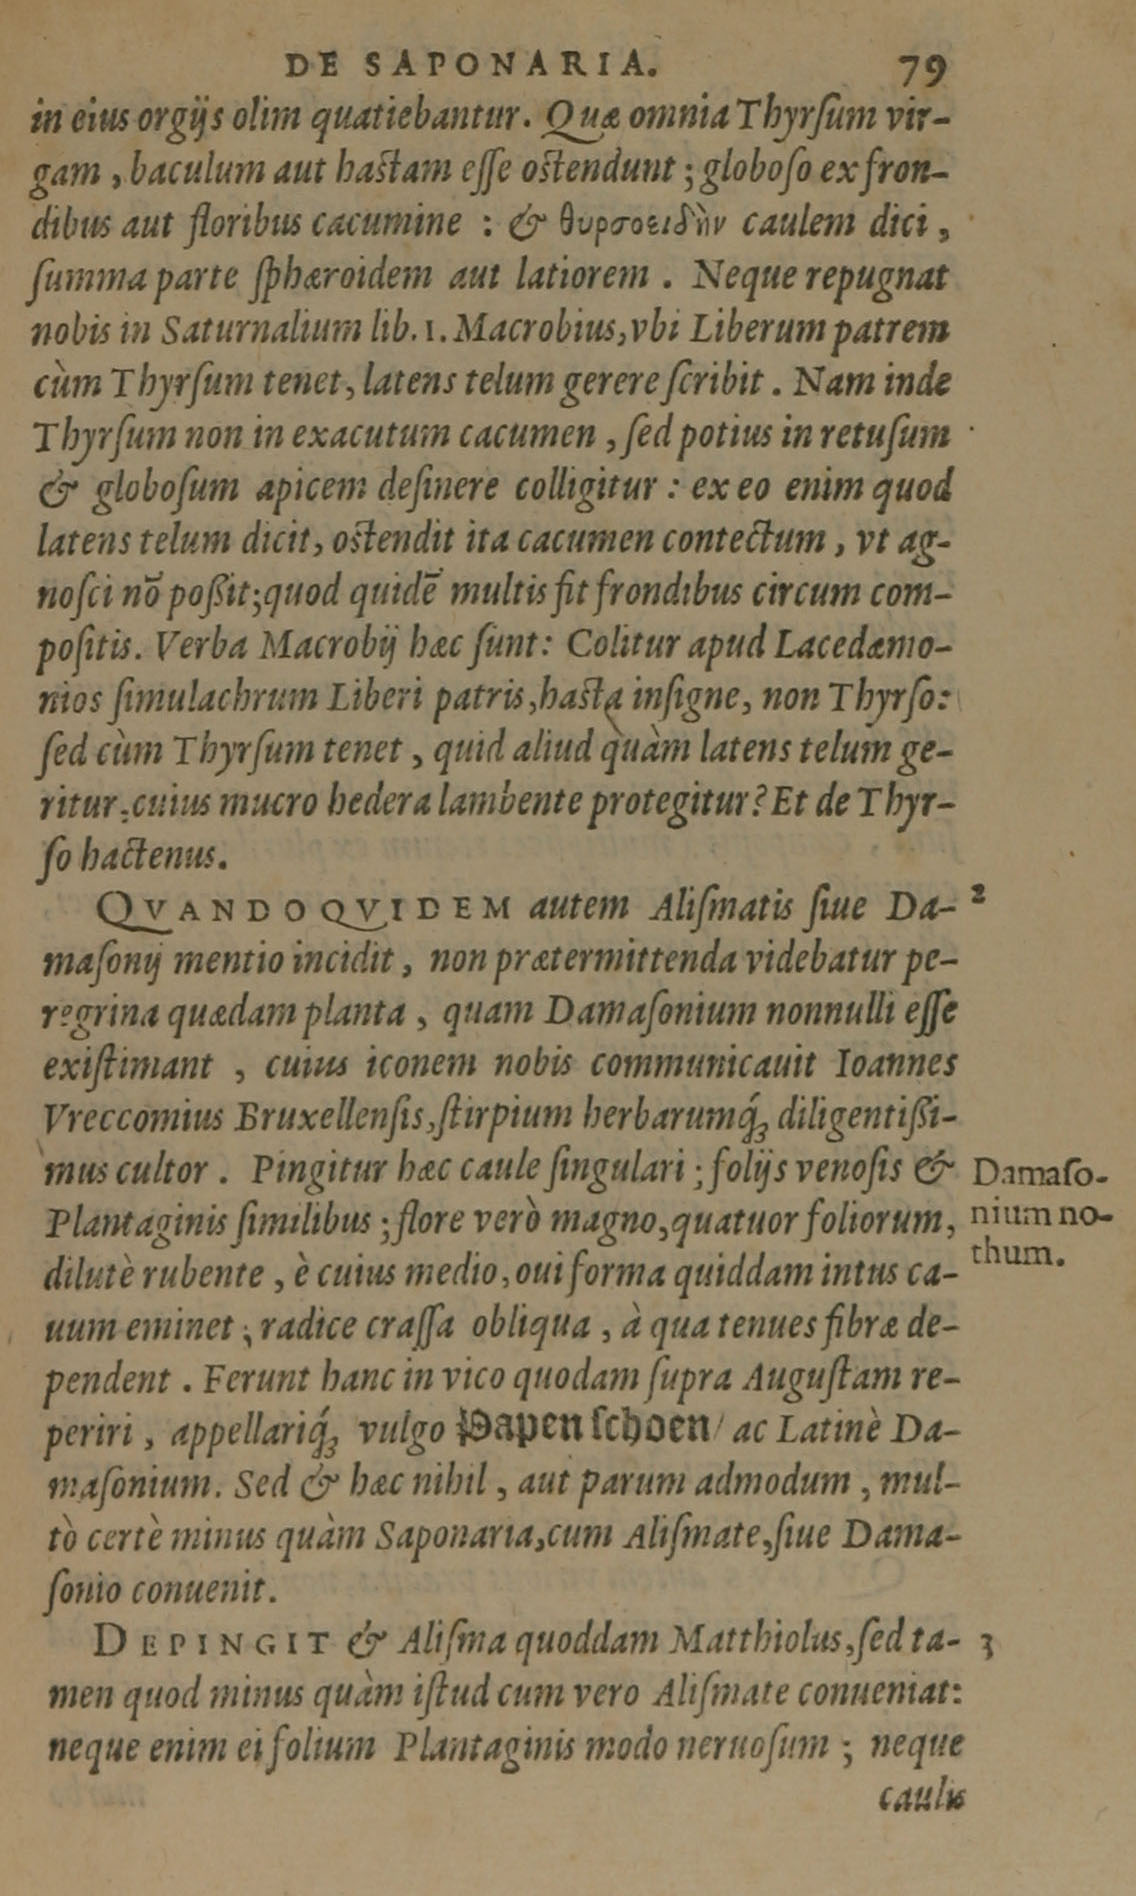 DE SAPONARIA. 79
in eius orgijs olim quatiebantur. Quæ omnia Thyrſum vir-
gam, baculum aut hastam eſſe ostendunt; globoſo ex fron-
dibus aut floribus cacumine: & θυρσοειδὴν caulem dici,
ſumma parte ſphæroidem aut latiorem. Neque repugnat
nobis in Saturnalium lib. 1. Macrobius, vbi Liberum patrem
cùm Thyrſum tenet, latens telum gerere ſcribit. Nam inde
Thyrſum non in exacutum cacumen, ſed potius in retuſum
& globoſum apicem deſinere colligitur: ex eo enim quod
latens telum dicit, ostendit ita cacumen contectum, vt ag-
noſci nō poßit; quod quidē multis fit frondibus circum com-
poſitis. Verba Macrobij hæc ſunt: Colitur apud Lacedæmo-
nios ſimulachrum Liberi patris, hasta inſigne, non Thyrſo:
ſed cùm Thyrſum tenet, quid aliud quàm latens telum ge-
ritur, cuius mucro hedera lambente protegitur? Et de Thyr-
ſo hactenus.
QVANDOQVIDEM autem Aliſmatis ſiue Da- 2
maſonij mentio incidit, non prætermittenda videbatur pe-
regrina quædam planta, quam Damaſonium nonnulli eſſe
exiſtimant, cuius iconem nobis communicauit Ioannes
Vreccomius Bruxellenſis, ſtirpium herbarumq́ꝫ diligentißi-
mus cultor. Pingitur hæc caule ſingulari; folijs venoſis &
Plantaginis ſimilibus; flore verò magno, quatuor foliorum,
dilutè rubente, è cuius medio, oui forma quiddam intus ca-
uum eminet; radice craſſa obliqua, à qua tenues fibræ de-
pendent. Ferunt hanc in vico quodam ſupra Auguſtam re-
periri, appellariq́ꝫ vulgo Papen ſchoen/ ac Latinè Da-
maſonium. Sed & hæc nihil, aut parum admodum, mul-
tò certè minus quàm Saponaria, cum Aliſmate, ſiue Dama-
ſonio conuenit.
Damaſo-
nium no-
thum.
DEPINGIT & Aliſma quoddam Matthiolus, ſed ta- 3
men quod minus quàm iſtud cum vero Aliſmate conueniat:
neque enim ei folium Plantaginis modo neruoſum; neque
caulis